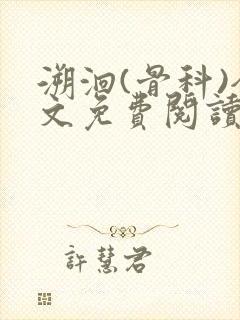 溯洄(骨科)
文免費閱讀
許慧君